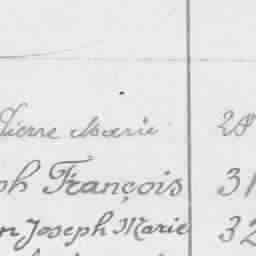 Pierre Marie 28
ph François 31
n Joseph Marie 32